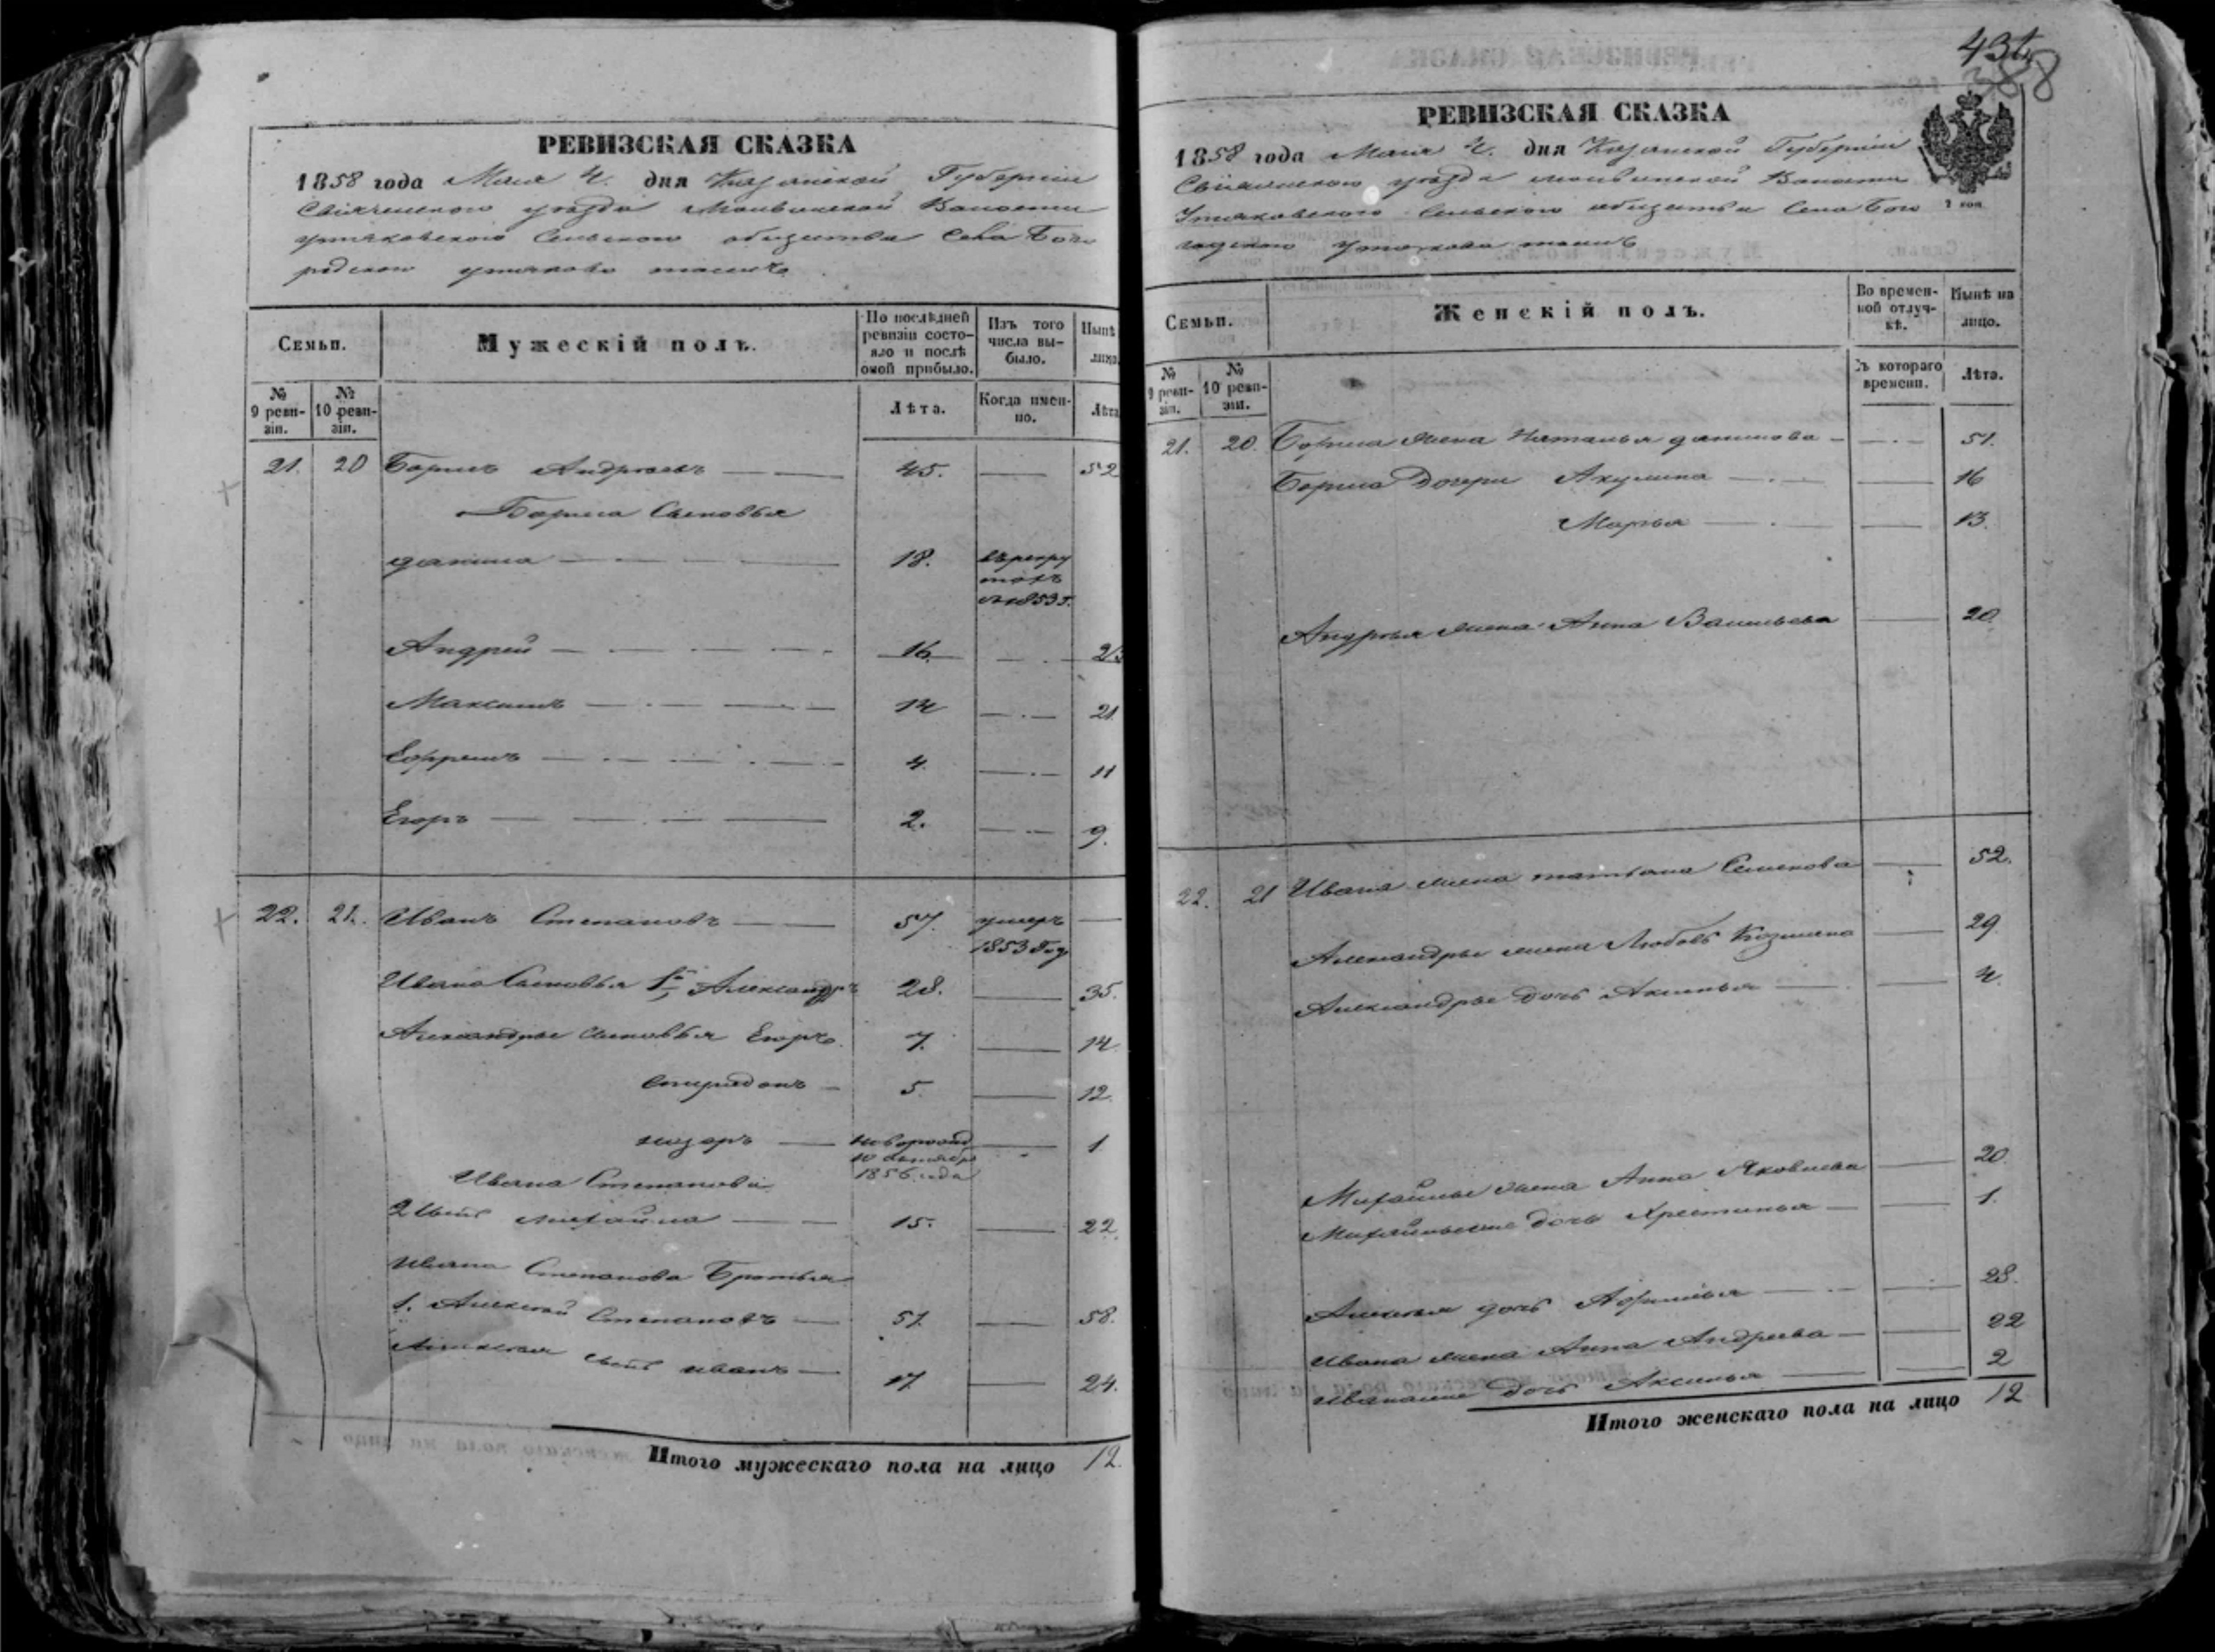 РЕВИЗСКАЯ СКАЗКА
1858 года Мая 4. дня Казанской Губернии
Свияжскаго уезда Волости
Утяковскаго Сельскаго общества Села Бого
родскаго Утяково тожъ
Семьи.
Мужескій полъ.
По послѣдней ревизіи состояло и послѣ оной прибыло.
Изъ того числа выбыло.
Нынѣ
лицо
№ 9 ревизіи.
№ 10 ревизіи.
Лѣта.
Когда именно.
Лѣта
21. 20 Борисъ Андреевъ 45. 52
Бориса Сыновья
Данила 18. въ рекру
тахъ
1853 г.
Андрей 16. 23
Максимъ 14 21
Ефремъ 4 11
Егоръ 2. 9.
22. 21. Иванъ Степановъ 57. умеръ
1853 Году
Ивана Сыновья 1й Александръ 28. 35.
Александры сыновья Егоръ 7. 14
Спиридонъ 5. 12.
назаръ новорожд 1
10 октября
1856 года
Ивана Степанова
2 Сынъ михайла 15. 22
Ивана Степанова Братья
1. Алексей Степановъ 51 58.
Алексея сынъ иванъ 17 24.
Итого мужескаго пола на лицо 12.
434
388
РЕВИЗСКАЯ СКАЗКА
1858 года Мая 4. дня Казанской Губернии
Свияжскаго уезда Волости
Утяковскаго Сельскаго общества Села Бого
родскаго Утякова тожъ
Семьи.
Женскій полъ.
Во временной отлучкѣ.
Нынѣ на лицо.
№ 9 ревизіи.
№ 10 ревизіи.
Съ котораго времени.
Лѣта.
21. 20. Бориса жена Наталья данилова 51.
Бориса Дочери Акулина 16
Марья 13.
Андрея жена Анна Васильева 20.
22. 21 Ивана жена татьяна Семенова 52.
Александры жена Любовь Козмина 29
Александры дочь Аксинья 4.
Михайлы жена Анна Яковлева 20
дочь Хрестинья 1.
Алексея дочь 28.
Ивана жена Анна Андреева 22
дочь Аксинья 2
Итого женскаго пола на лицо 12